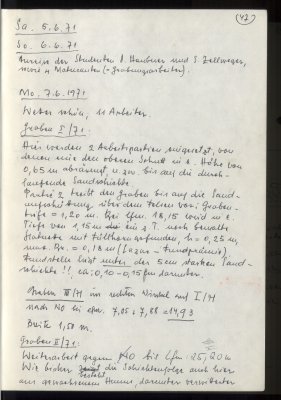 (47)
Sa. 5.6.71
So. 6.6.71
Anreise der Studenten A. Hauberer und S. Zellweger,
sowie 4 Maturanten (=Grabungsarbeiter).
Mo. 7.6.1971
Wetter schön, 11 Arbeiter.
Graben I/71:
Hier werden 2 Arbeitspartien eingesetzt, von
denen eine den oberen Schutt in e. Höhe von
0,65 m abräumt, u. zw. bis auf die durch-
laufende Sandschichte.
Partie 2 treibt den Graben bis auf die Sand-
aufschüttung über dem Felsen vor: Graben-
tiefe = 1,20 m. Bei lfm. 18,15 wird in e.
Tiefe von 1,15 m die ein z. T. noch bewalte
Statuette mit Füllhorn gefunden, h = 0,25 m,
max. Br. = 0,18 m (Lazar - Fundpodium)
Fundstelle liegt unter der 5 cm starken Sand-
schichte!! ca. 0,10-0,15 m darunter.
Graben III/71 im rechten Winkel auf I/71
nach No bei lfm. 7,05 + 7,88 = 14,93
Breite 1,50 m.
Graben II/71:
Weiterarbeit gegen No bis lfm: 25,20 m
Wie bisher besteht die Schichtenfolge auch hier
aus gewachsenem Humus, darunter verwitterter